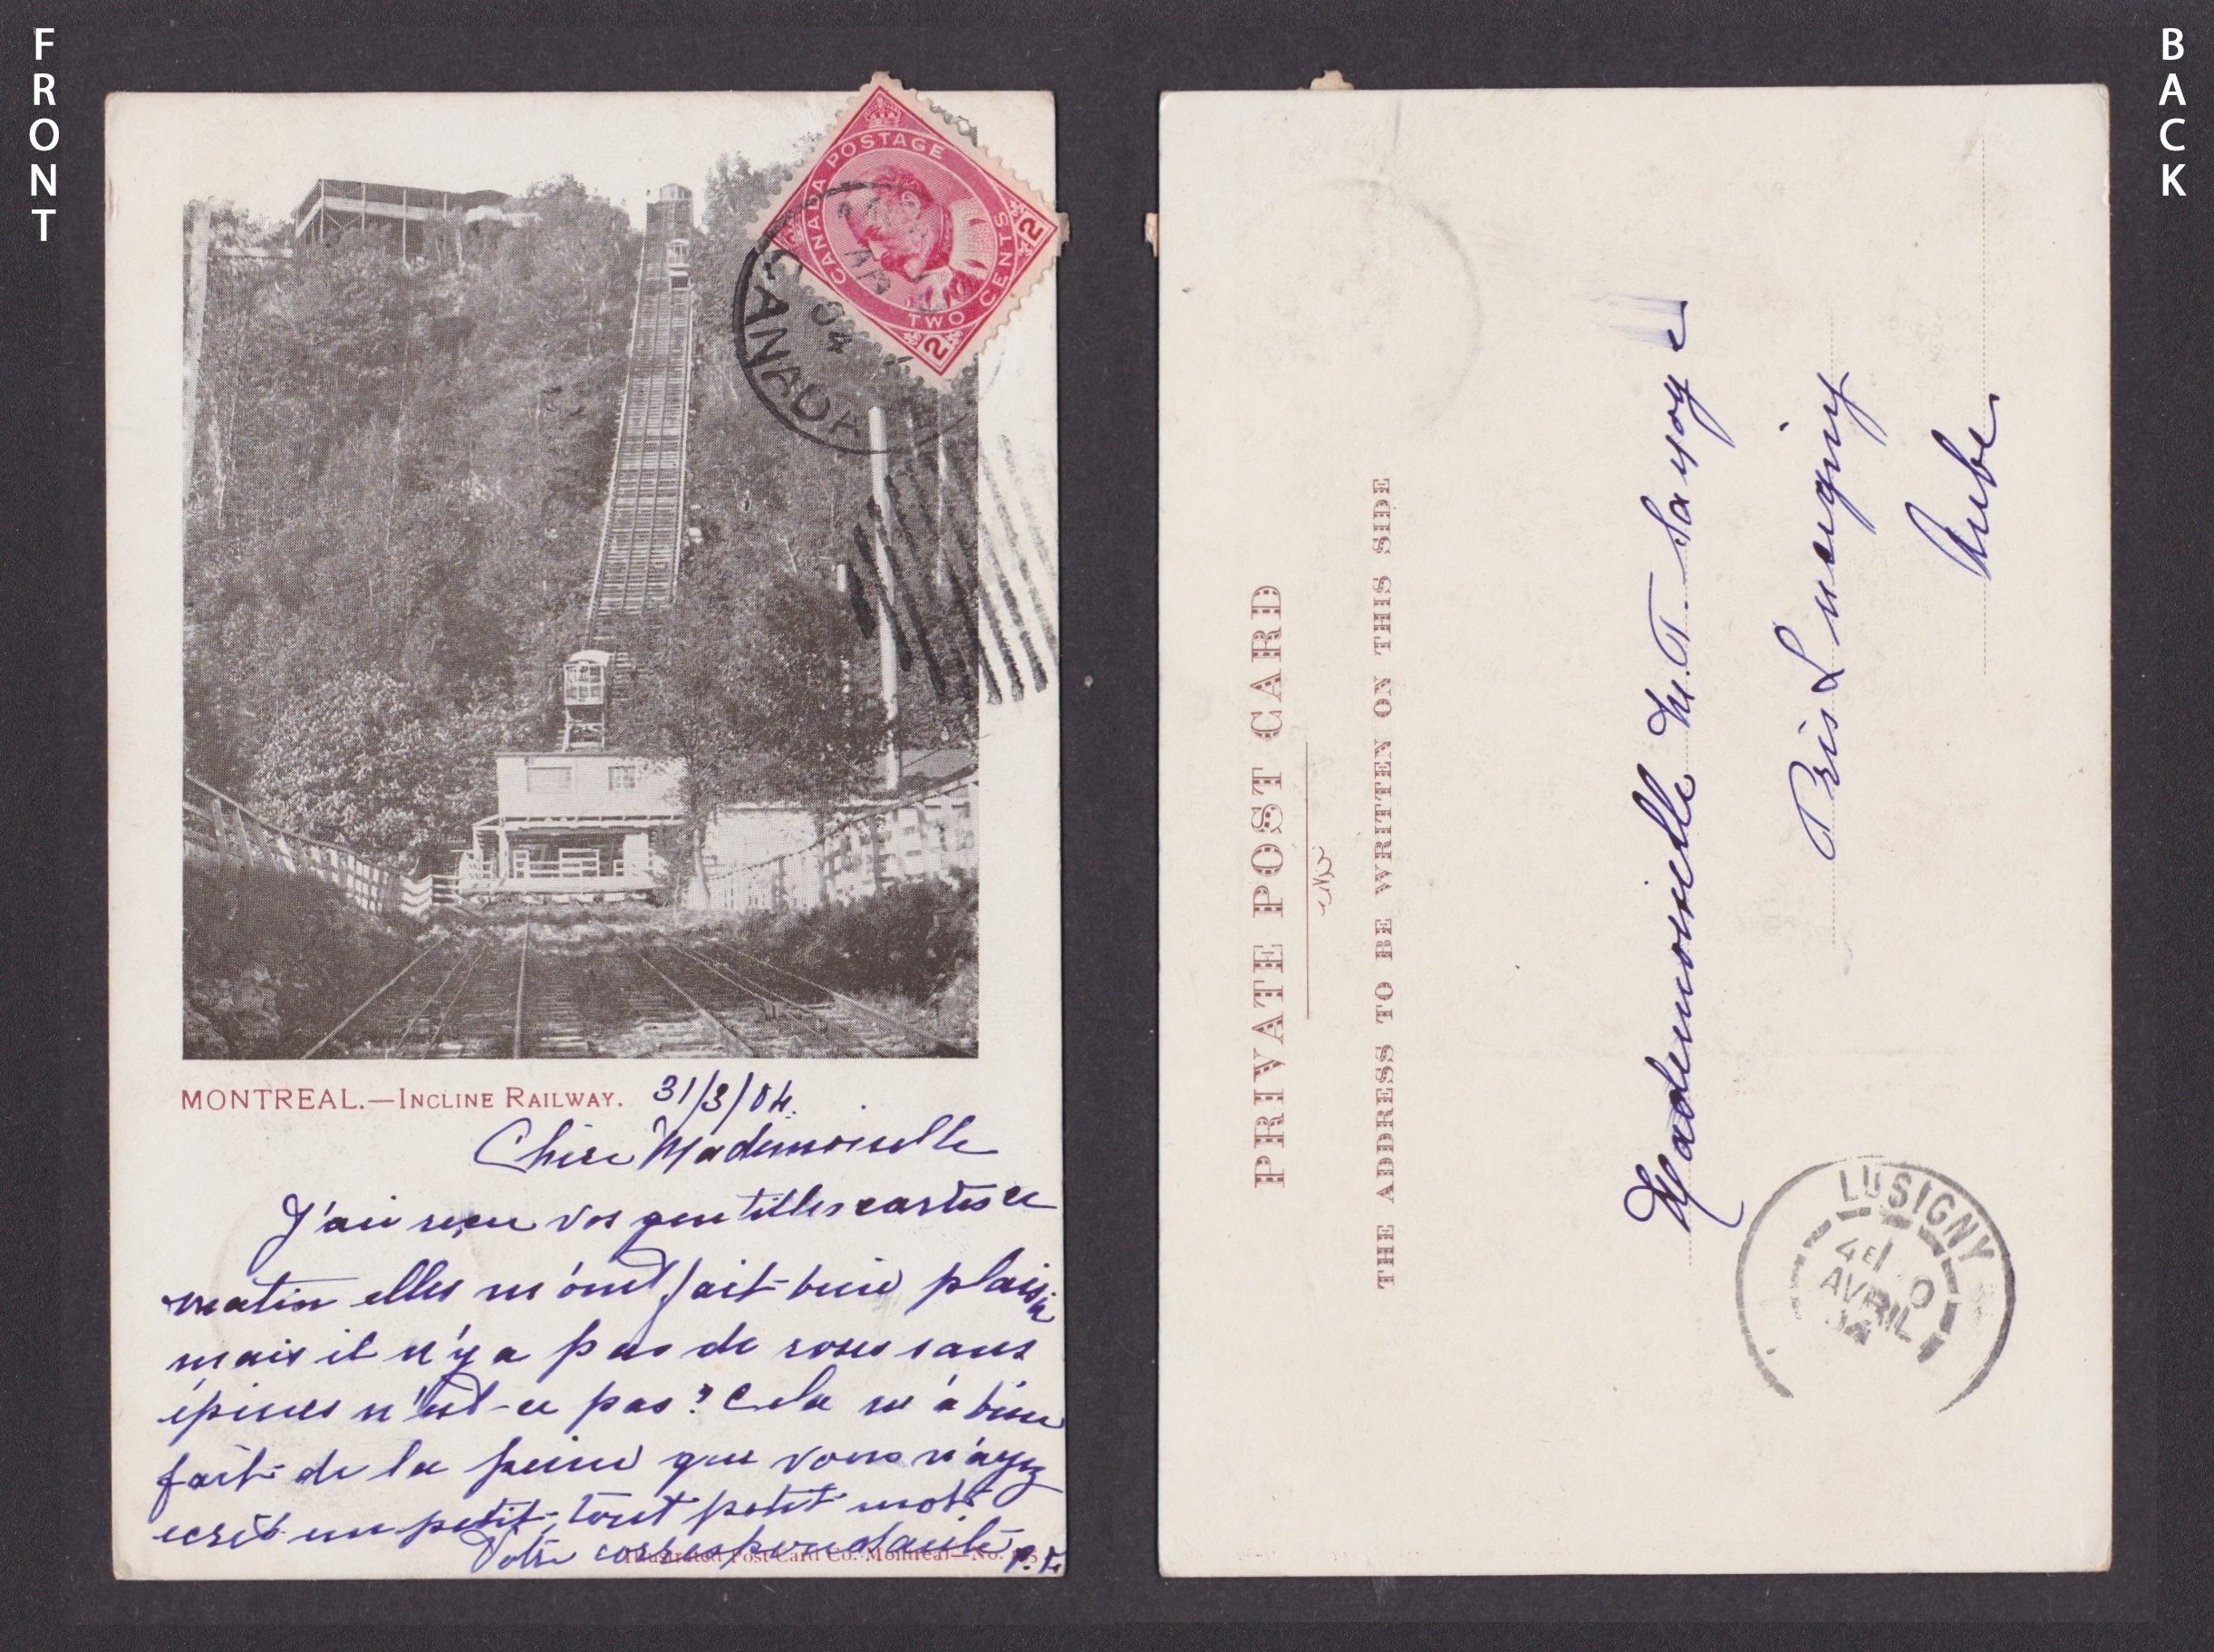 FRONT
BACK
CANADA POSTAGE
TWO CENTS
2 2
CANADA
04
MONTREAL.—INCLINE RAILWAY. 31/3/04.
Chère Mademoiselle
J'ai reçu vos gentilles cartes ce
matin elles m'ont fait bien plaisir
mais il n'y a pas de roses sans
épines n'est-ce pas? Cela m'a bien
fait de la peine que vous n'ayez
ecrit un petit, tout petit mot
Votre correspondante P.
Illustrated Post Card Co. Montreal—No.
PRIVATE POST CARD
THE ADDRESS TO BE WRITTEN ON THIS SIDE
Mademoiselle M.T. Savoye
Près Lusigny
Aube
LUSIGNY
AVRIL
04